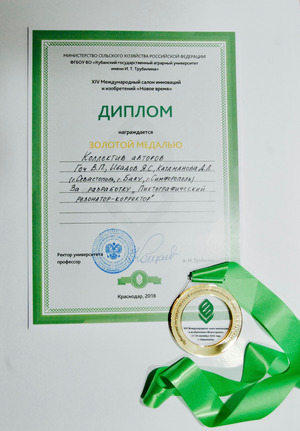 МИНИСТЕРСТВО СЕЛЬСКОГО ХОЗЯЙСТВА РОССИЙСКОЙ ФЕДЕРАЦИИ
ФГБОУ ВО «Кубанский государственный аграрный университет
имени И. Т. Трубилина»
XIV Международный салон инноваций
и изобретений «Новое время»
ДИПЛОМ
награждается
ЗОЛОТОЙ МЕДАЛЬЮ
Коллектив авторов
Гоч В.П., Д.Л
(г.Севастополь, г.Баку, г.Симферополь)
За разработку „Пиктографический
резонатор-корректор"
Ректор университета
профессор
Краснодар, 2018
XIV Международный салон инноваций
и изобретений «Новое время»